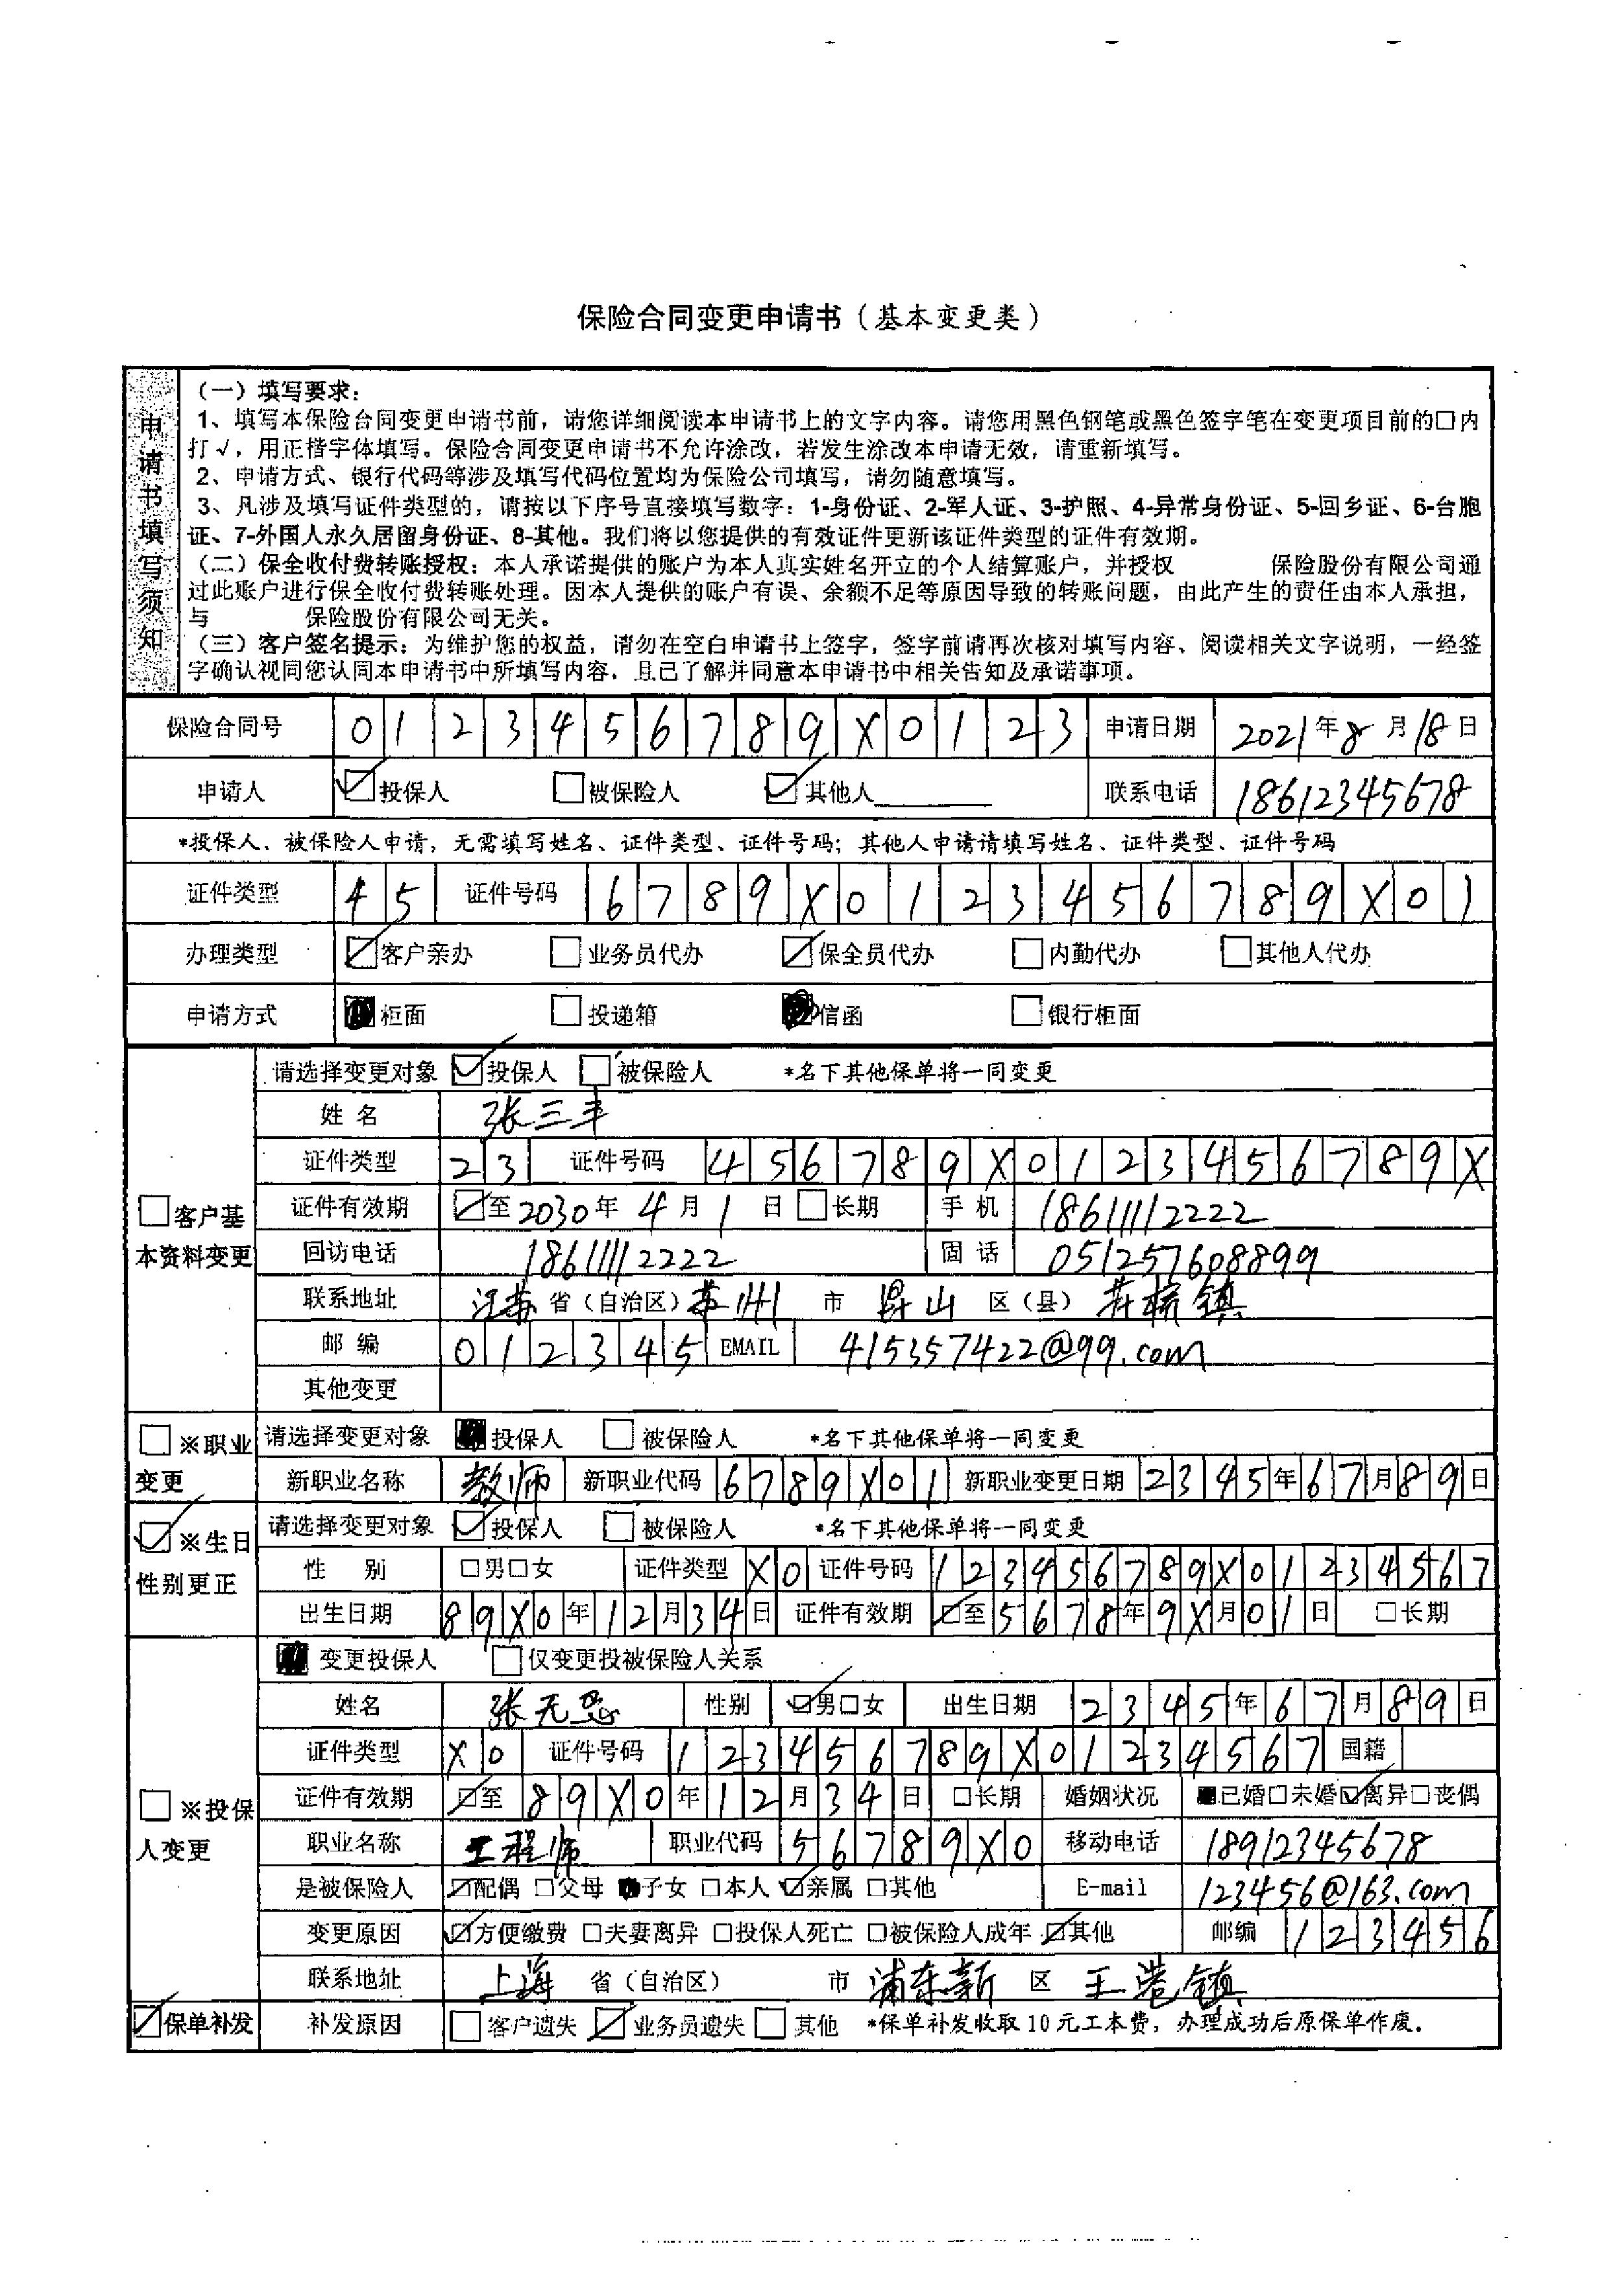 保险合同变更申请书（基本变更类）
申请书填写须知
（一）填写要求：
1、填写本保险合同变更申请书前，请您详细阅读本申请书上的文字内容。请您用黑色钢笔或黑色签字笔在变更项目前的□内
打√，用正楷字体填写。保险合同变更申请书不允许涂改，若发生涂改本申请无效，请重新填写。
2、申请方式、银行代码等涉及填写代码位置均为保险公司填写，请勿随意填写。
3、凡涉及填写证件类型的，请按以下序号直接填写数字：1-身份证、2-军人证、3-护照、4-异常身份证、5-回乡证、6-台胞
证、7-外国人永久居留身份证、8-其他。我们将以您提供的有效证件更新该证件类型的证件有效期。
（二）保全收付费转账授权：本人承诺提供的账户为本人真实姓名开立的个人结算账户，并授权 保险股份有限公司通
过此账户进行保全收付费转账处理。因本人提供的账户有误、余额不足等原因导致的转账问题，由此产生的责任由本人承担，
与 保险股份有限公司无关。
（三）客户签名提示：为维护您的权益，请勿在空白申请书上签字，签字前请再次核对填写内容、阅读相关文字说明，一经签
字确认视同您认同本申请书中所填写内容，且已了解并同意本申请书中相关告知及承诺事项。
保险合同号 0123456789X0123 申请日期 2021年8月18日
申请人 ☑投保人 □被保险人 ☑其他人 联系电话 18612345678
*投保人、被保险人申请，无需填写姓名、证件类型、证件号码；其他人申请请填写姓名、证件类型、证件号码
证件类型 45 证件号码 6789X0123456789X01
办理类型 ☑客户亲办 □业务员代办 ☑保全员代办 □内勤代办 □其他人代办
申请方式 ■柜面 □投递箱 ■信函 □银行柜面
请选择变更对象 ☑投保人 □被保险人 *名下其他保单将一同变更
姓名 张三丰
证件类型 23 证件号码 456789X0123456789X
□客户基本资料变更
证件有效期 ☑至2030年4月1日 □长期 手机 18611112222
回访电话 18611112222 固话 051257608899
联系地址 江苏省（自治区）苏州市 昆山区（县）花桥镇
邮编 012345 EMAIL 415357422@qq.com
其他变更
□※职业变更
请选择变更对象 ■投保人 □被保险人 *名下其他保单将一同变更
新职业名称 教师 新职业代码 6789X01 新职业变更日期 2345年67月89日
☑※生日性别更正
请选择变更对象 ☑投保人 □被保险人 *名下其他保单将一同变更
性别 □男□女 证件类型 X0 证件号码 123456789X01234567
出生日期 89X0年12月34日 证件有效期 ☑至5678年9X月01日 □长期
■变更投保人 □仅变更投被保险人关系
姓名 张无忌 性别 ☑男□女 出生日期 2345年67月89日
证件类型 X0 证件号码 123456789X01234567 国籍
□※投保人变更
证件有效期 ☑至89X0年12月34日 □长期 婚姻状况 ■已婚□未婚☑离异□丧偶
职业名称 工程师 职业代码 56789X0 移动电话 18912345678
是被保险人 ☑配偶 □父母 ■子女 □本人 ☑亲属 □其他 E-mail 123456@163.com
变更原因 ☑方便缴费 □夫妻离异 □投保人死亡 □被保险人成年 ☑其他 邮编 123456
联系地址 上海省（自治区） 市 浦东新区 王港镇
☑保单补发 补发原因 □客户遗失 ☑业务员遗失 □其他 *保单补发收取10元工本费，办理成功后原保单作废。